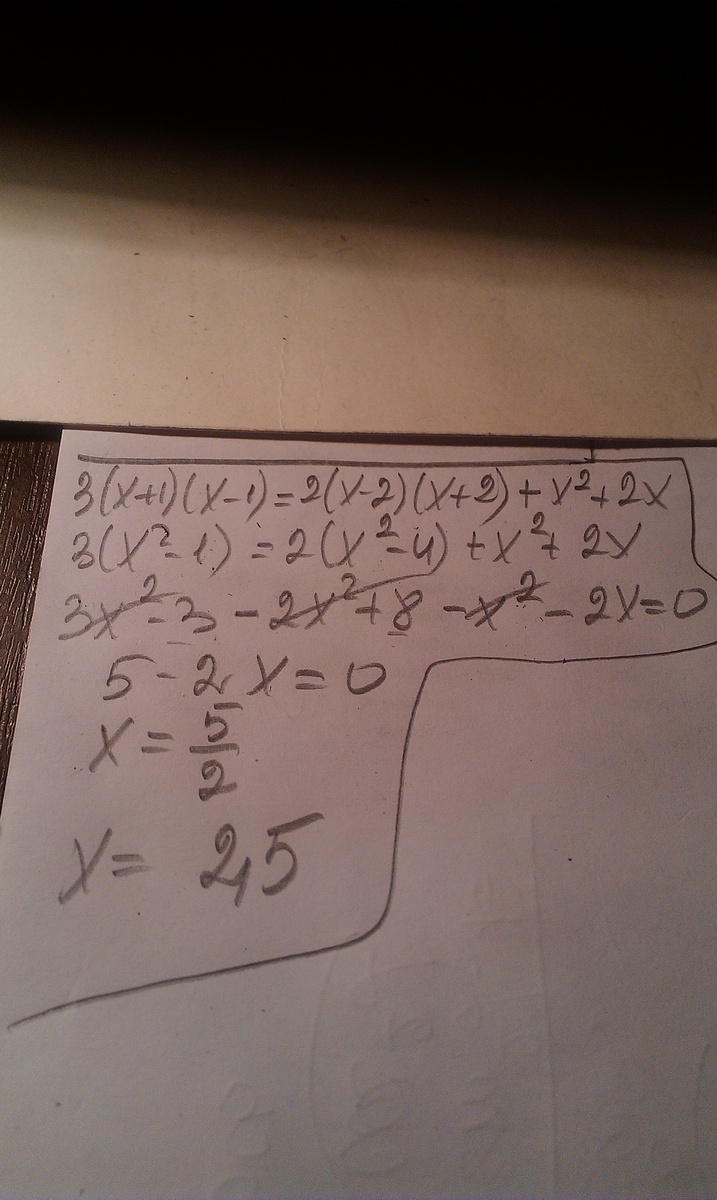 3(x+1)(x-1)=2(x-2)(x+2)+x²+2x
3(x²-1)=2(x²-4)+x²+2x
3x²-3-2x²+8-x²-2x=0
5-2x=0
x=5/2
x=2,5